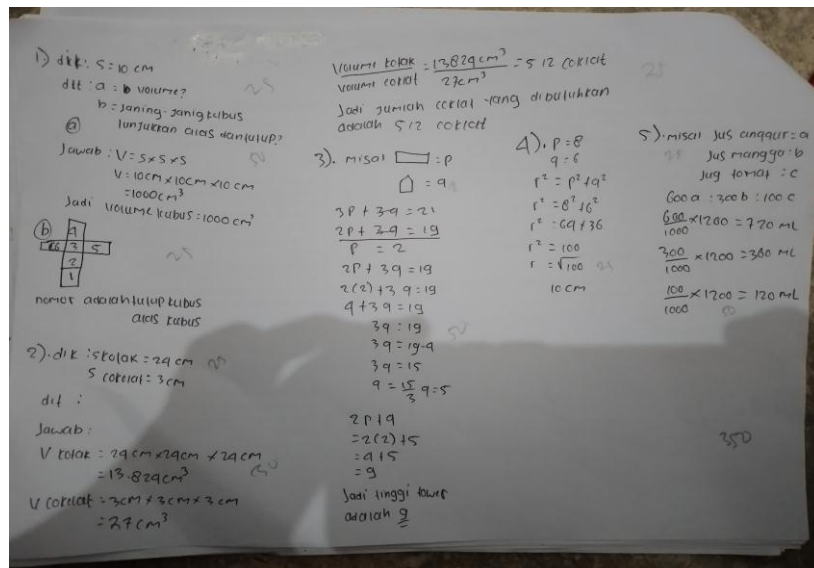 1) dik : S = 10 cm
dit : a = volume?
b = Jaring-Jaring kubus
tunjukkan alas dan tutup?
(a)
Jawab : V = S x S x S
V = 10cm x 10cm x 10 cm
= 1000 cm³
Jadi volume kubus = 1000 cm³
(b)
4
6 3 5
2
1
nomor adalah tutup kubus
alas kubus
2). dik : S kotak = 24 cm
S cokelat = 3 cm
dit :
Jawab :
V kotak = 24 cm x 24 cm x 24 cm
= 13.824 cm³
V cokelat = 3cm x 3 cm x 3 cm
= 27 cm³
Volume kotak / Volume coklat = 13824 cm³ / 27 cm³ = 512 coklat
Jadi jumlah coklat yang dibutuhkan
adalah 512 coklat
25
3). misal : P
= q
3P + 3q = 21
2P + 3q = 19
P = 2
2P + 3q = 19
2(2) + 3q = 19
4 + 3q = 19
3q = 19
3q = 19-4
3q = 15
q = 15/3 q = 5
2P + q
= 2(2) + 5
= 4 + 5
= 9
Jadi tinggi tower
adalah 9
4). P = 8
q = 6
r² = P² + q²
r² = 8² + 6²
r² = 64 + 36
r² = 100
r = √100
10 cm
5). misal Jus anggur = a
Jus mangga = b
Jus tomat = c
600 a : 300 b : 100 c
600/1000 x 1200 = 720 mL
300/1000 x 1200 = 360 mL
100/1000 x 1200 = 120 mL
350